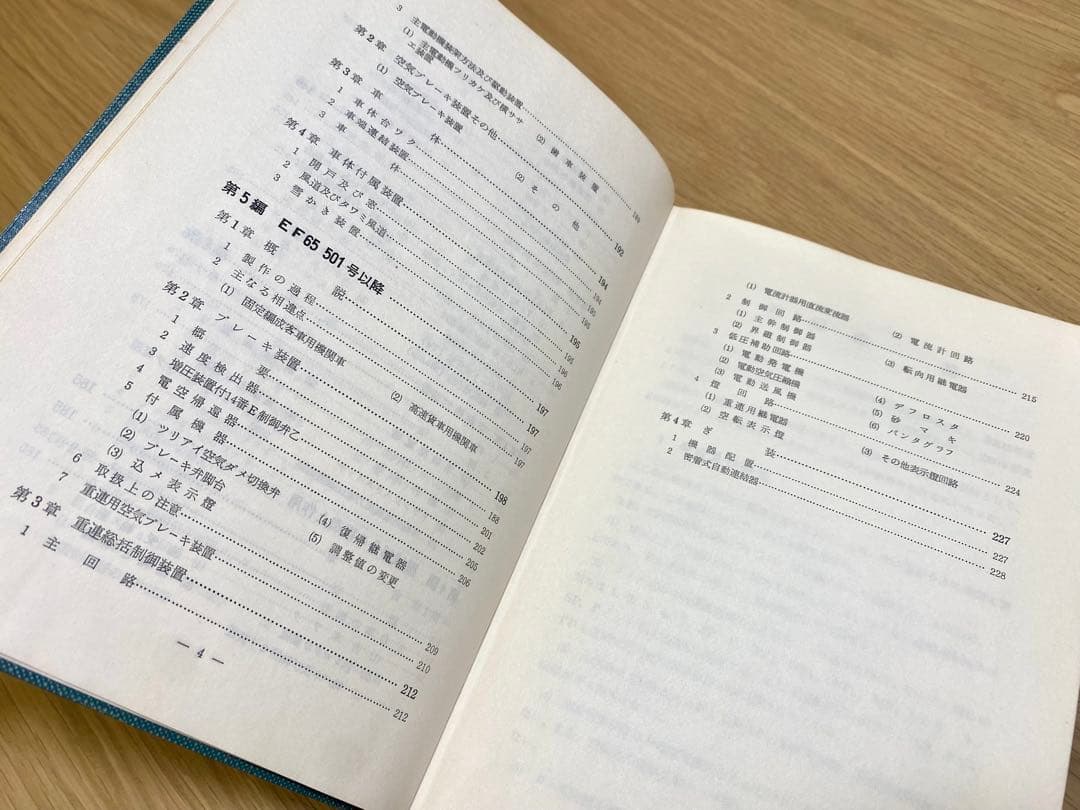 3 主電動機装架方法及び駆動装置………189
(1) 主電動機ツリカケ及び横ササエ装置 (2) 歯車装置
第2章 空気ブレーキ装置その他………192
(1) 空気ブレーキ装置 (2) その他
第3章 車体………194
1 車体台ワク………194
2 車端連結装置………195
3 車体………195
第4章 車体付属装置………195
1 開戸及び窓………195
2 風道及びタワミ風道………196
3 雪かき装置………196
第5編 EF65 501号以降
第1章 概説………197
1 製作の過程………197
2 主なる相違点………197
(1) 固定編成客車用機関車 (2) 高速貨車用機関車
第2章 ブレーキ装置………198
1 概要………188
2 速度検出器………201
3 増圧装置付14番E制御弁乙………202
4 電空帰還器………205
5 付属機器………206
(1) ツリアイ空気ダメ切換弁 (4) 復帰継電器
(2) ブレーキ弁脚台 (5) 調整値の変更
(3) 込メ表示燈
6 取扱上の注意………209
7 重連用空気ブレーキ装置………210
第3章 重連総括制御装置………212
1 主回路………212
— 4 —
(1) 電流計器用直流変流器 (2) 電流計回路
2 制御回路………215
(1) 主幹制御器 (3) 転向用継電器
(2) 界磁制御器
3 低圧補助回路………220
(1) 電動発電機 (4) デフロスタ
(2) 電動空気圧縮機 (5) 砂マキ
(3) 電動送風機 (6) パンタグラフ
4 燈回路………224
(1) 重連用継電器 (3) その他表示燈回路
(2) 空転表示燈
第4章 ぎ装………227
1 機器配置………227
2 密着式自動連結器………228